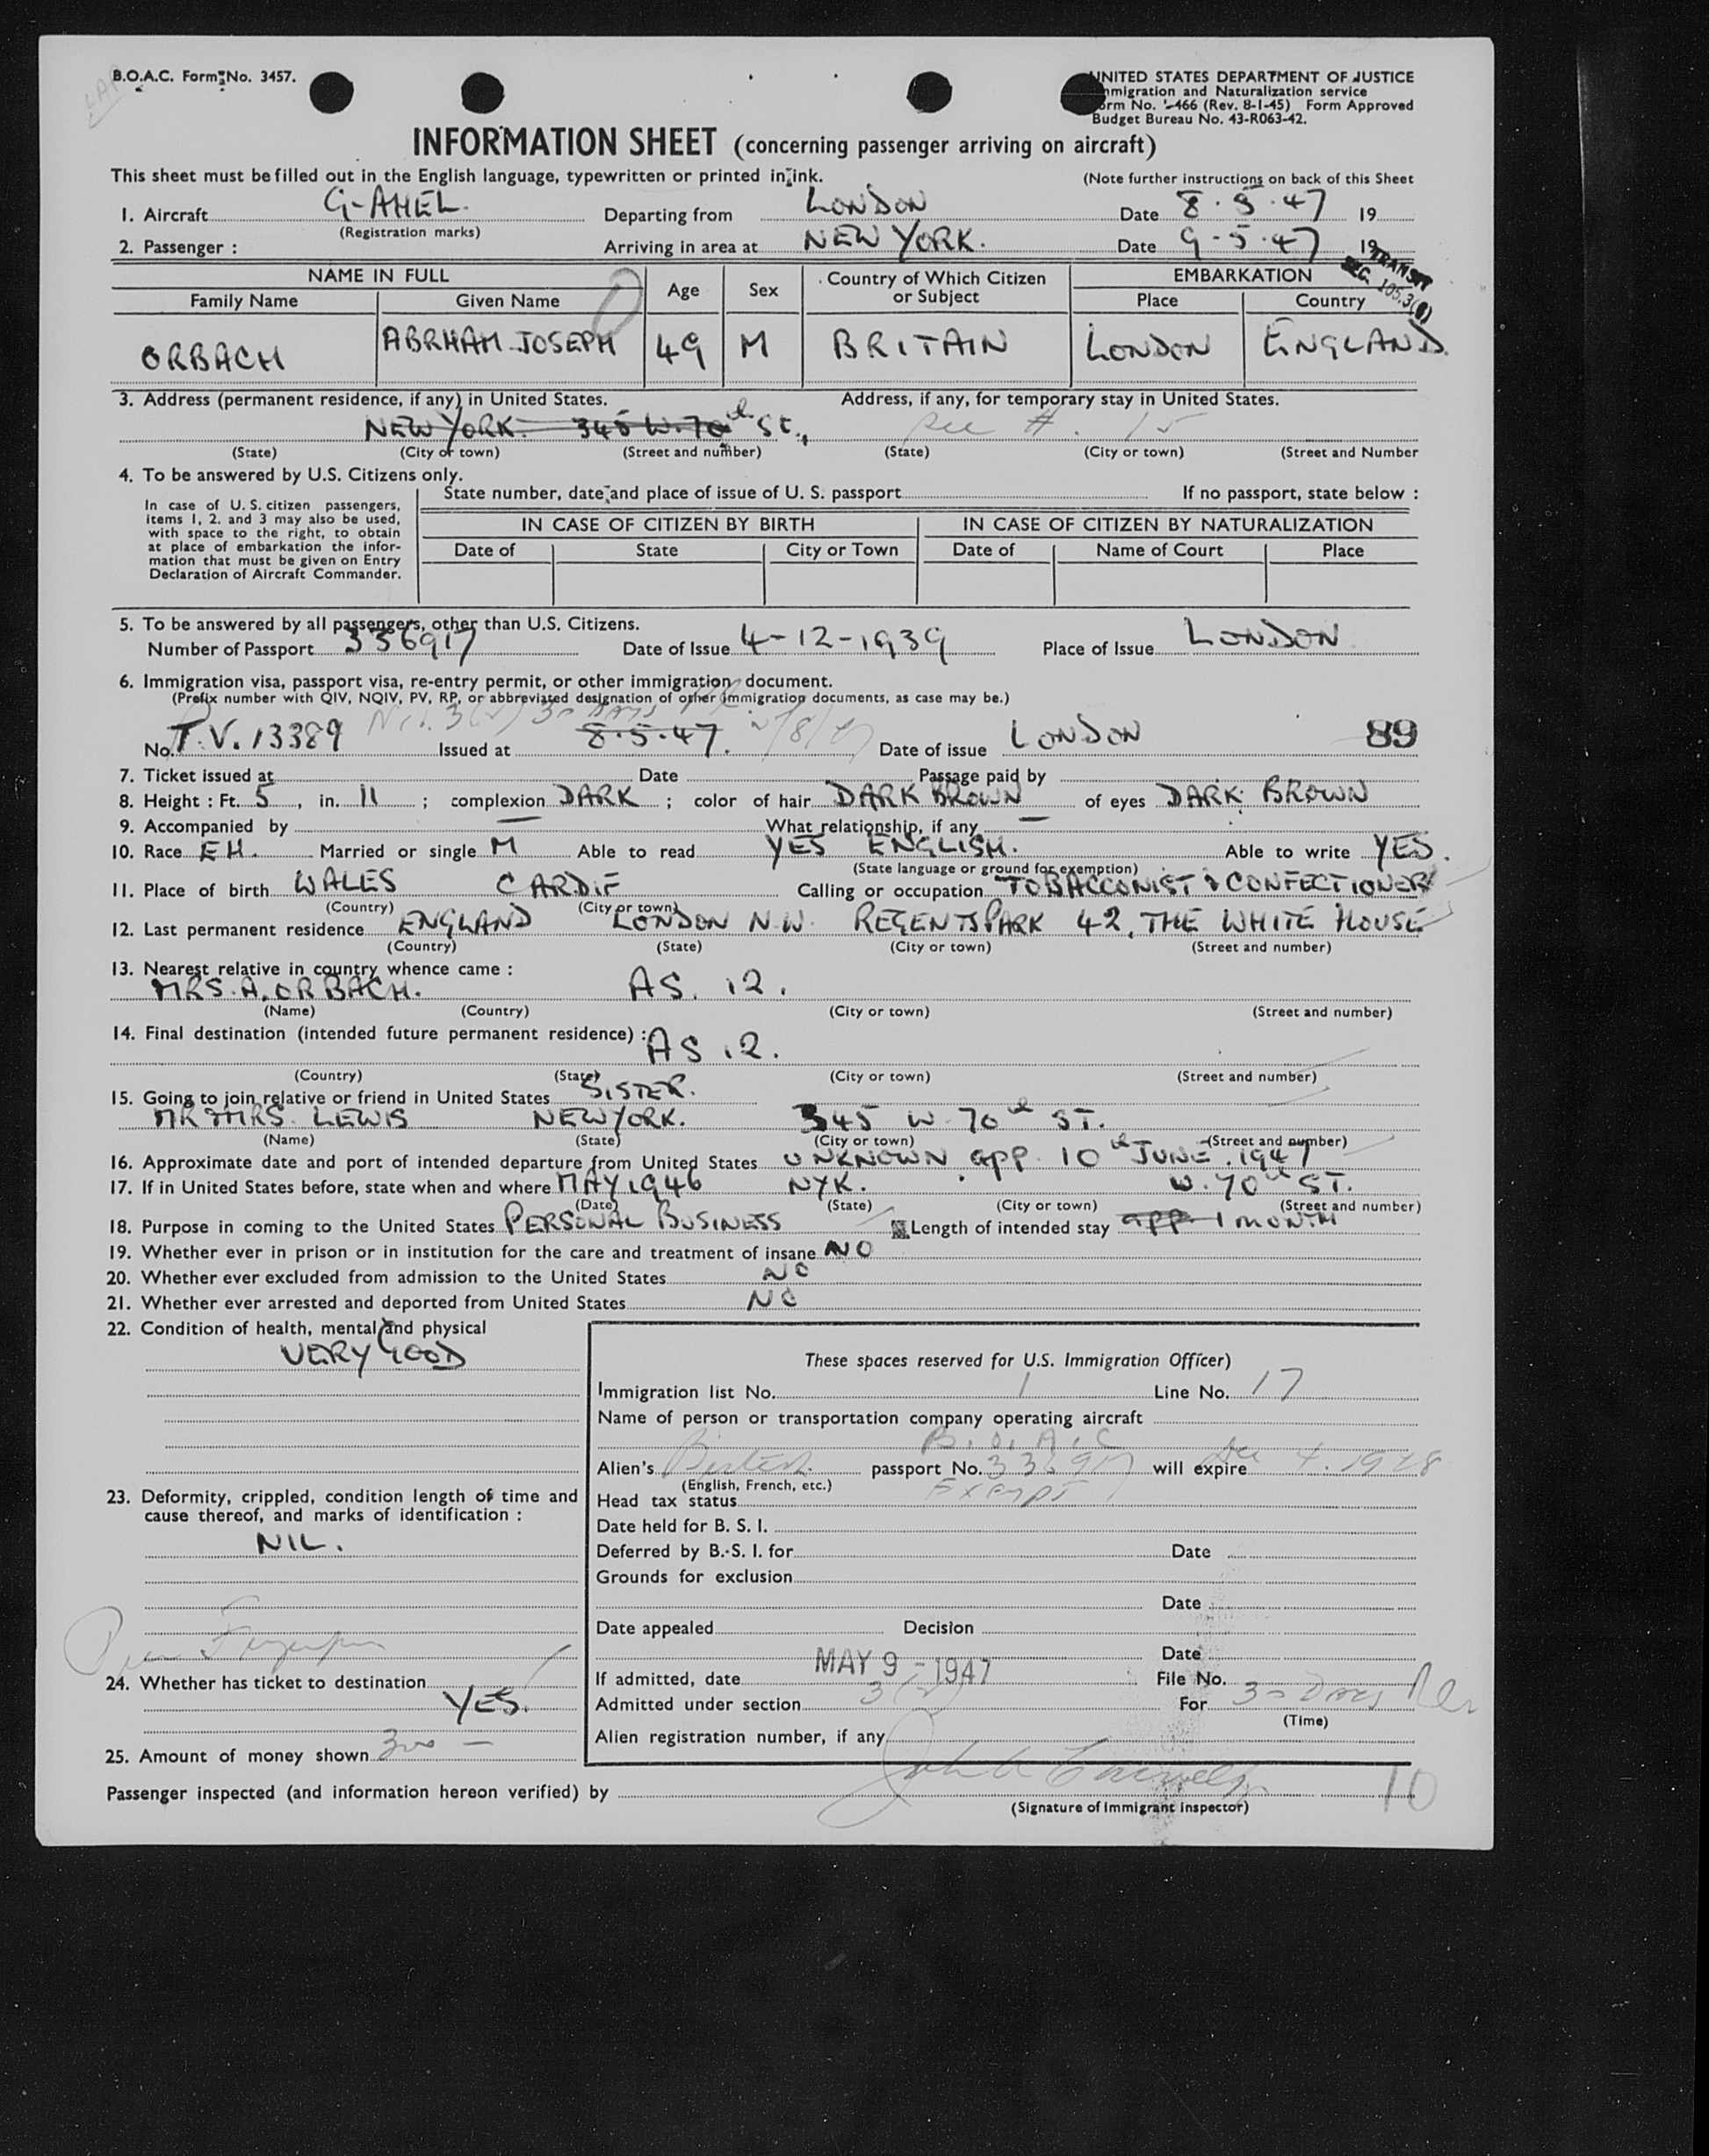 B.O.A.C. Form No. 3457.
UNITED STATES DEPARTMENT OF JUSTICE
Immigration and Naturalization service
Form No. I-466 (Rev. 8-1-45) Form Approved
Budget Bureau No. 43-R063-42.
INFORMATION SHEET (concerning passenger arriving on aircraft)
This sheet must be filled out in the English language, typewritten or printed in ink.
(Note further instructions on back of this Sheet
1. Aircraft G-AHEL. Departing from LONDON Date 8.5.47 19
(Registration marks)
2. Passenger : Arriving in area at NEW YORK. Date 9-5.47 19
TRANSIT
SEC. 105.3(
NAME IN FULL Age Sex Country of Which Citizen or Subject EMBARKATION
Family Name Given Name Place Country
ORBACH ABRHAM JOSEPH 49 M BRITAIN LONDON ENGLAND.
3. Address (permanent residence, if any) in United States. Address, if any, for temporary stay in United States.
NEW YORK. 345 W. 70th St., See #. 15
(State) (City or town) (Street and number) (State) (City or town) (Street and Number
4. To be answered by U.S. Citizens only.
State number, date and place of issue of U. S. passport If no passport, state below :
In case of U. S. citizen passengers,
items 1, 2. and 3 may also be used,
with space to the right, to obtain
at place of embarkation the infor-
mation that must be given on Entry
Declaration of Aircraft Commander.
IN CASE OF CITIZEN BY BIRTH IN CASE OF CITIZEN BY NATURALIZATION
Date of State City or Town Date of Name of Court Place
5. To be answered by all passengers, other than U.S. Citizens.
Number of Passport 336917 Date of Issue 4-12-1939 Place of Issue LONDON
6. Immigration visa, passport visa, re-entry permit, or other immigration document.
(Prefix number with QIV, NQIV, PV, RP, or abbreviated designation of other immigration documents, as case may be.)
No. T.V. 13389 Issued at 8.5.47. Date of issue LONDON 89
7. Ticket issued at Date Passage paid by
8. Height : Ft. 5 , in. 11 ; complexion DARK ; color of hair DARK BROWN of eyes DARK BROWN
9. Accompanied by — What relationship, if any —
10. Race EH. Married or single M Able to read YES ENGLISH. Able to write YES.
(State language or ground for exemption)
11. Place of birth WALES CARDIF Calling or occupation TOBACCONIST & CONFECTIONER
(Country) (City or town)
12. Last permanent residence ENGLAND LONDON N.W. REGENTS PARK 42, THE WHITE HOUSE
(Country) (State) (City or town) (Street and number)
13. Nearest relative in country whence came :
MRS. A. ORBACH. AS. 12.
(Name) (Country) (City or town) (Street and number)
14. Final destination (intended future permanent residence) : AS 12.
(Country) (State) (City or town) (Street and number)
15. Going to join relative or friend in United States SISTER.
MR MRS. LEWIS NEW YORK. 345 W. 70th ST.
(Name) (State) (City or town) (Street and number)
16. Approximate date and port of intended departure from United States UNKNOWN. app. 10th JUNE. 1947
17. If in United States before, state when and where MAY 1946 NYK. W. 70th ST.
(Date) (State) (City or town) (Street and number)
18. Purpose in coming to the United States PERSONAL BUSINESS Length of intended stay app. 1 MONTH
19. Whether ever in prison or in institution for the care and treatment of insane NO
20. Whether ever excluded from admission to the United States NO
21. Whether ever arrested and deported from United States NO
22. Condition of health, mental and physical
VERY GOOD
These spaces reserved for U.S. Immigration Officer)
Immigration list No. 1 Line No. 17
Name of person or transportation company operating aircraft
B. O. A. C
Alien's British passport No. 336917 will expire Dec 4. 1948
(English, French, etc.)
Head tax status Exempt
23. Deformity, crippled, condition length of time and
cause thereof, and marks of identification :
NIL.
Date held for B. S. I.
Deferred by B.-S. I. for Date
Grounds for exclusion
Date
Date appealed Decision
Date
24. Whether has ticket to destination YES.
If admitted, date MAY 9 - 1947 File No.
Admitted under section 3(2) For 30 DAYS
(Time)
Alien registration number, if any
25. Amount of money shown 300 —
Passenger inspected (and information hereon verified) by
(Signature of Immigrant Inspector)
10